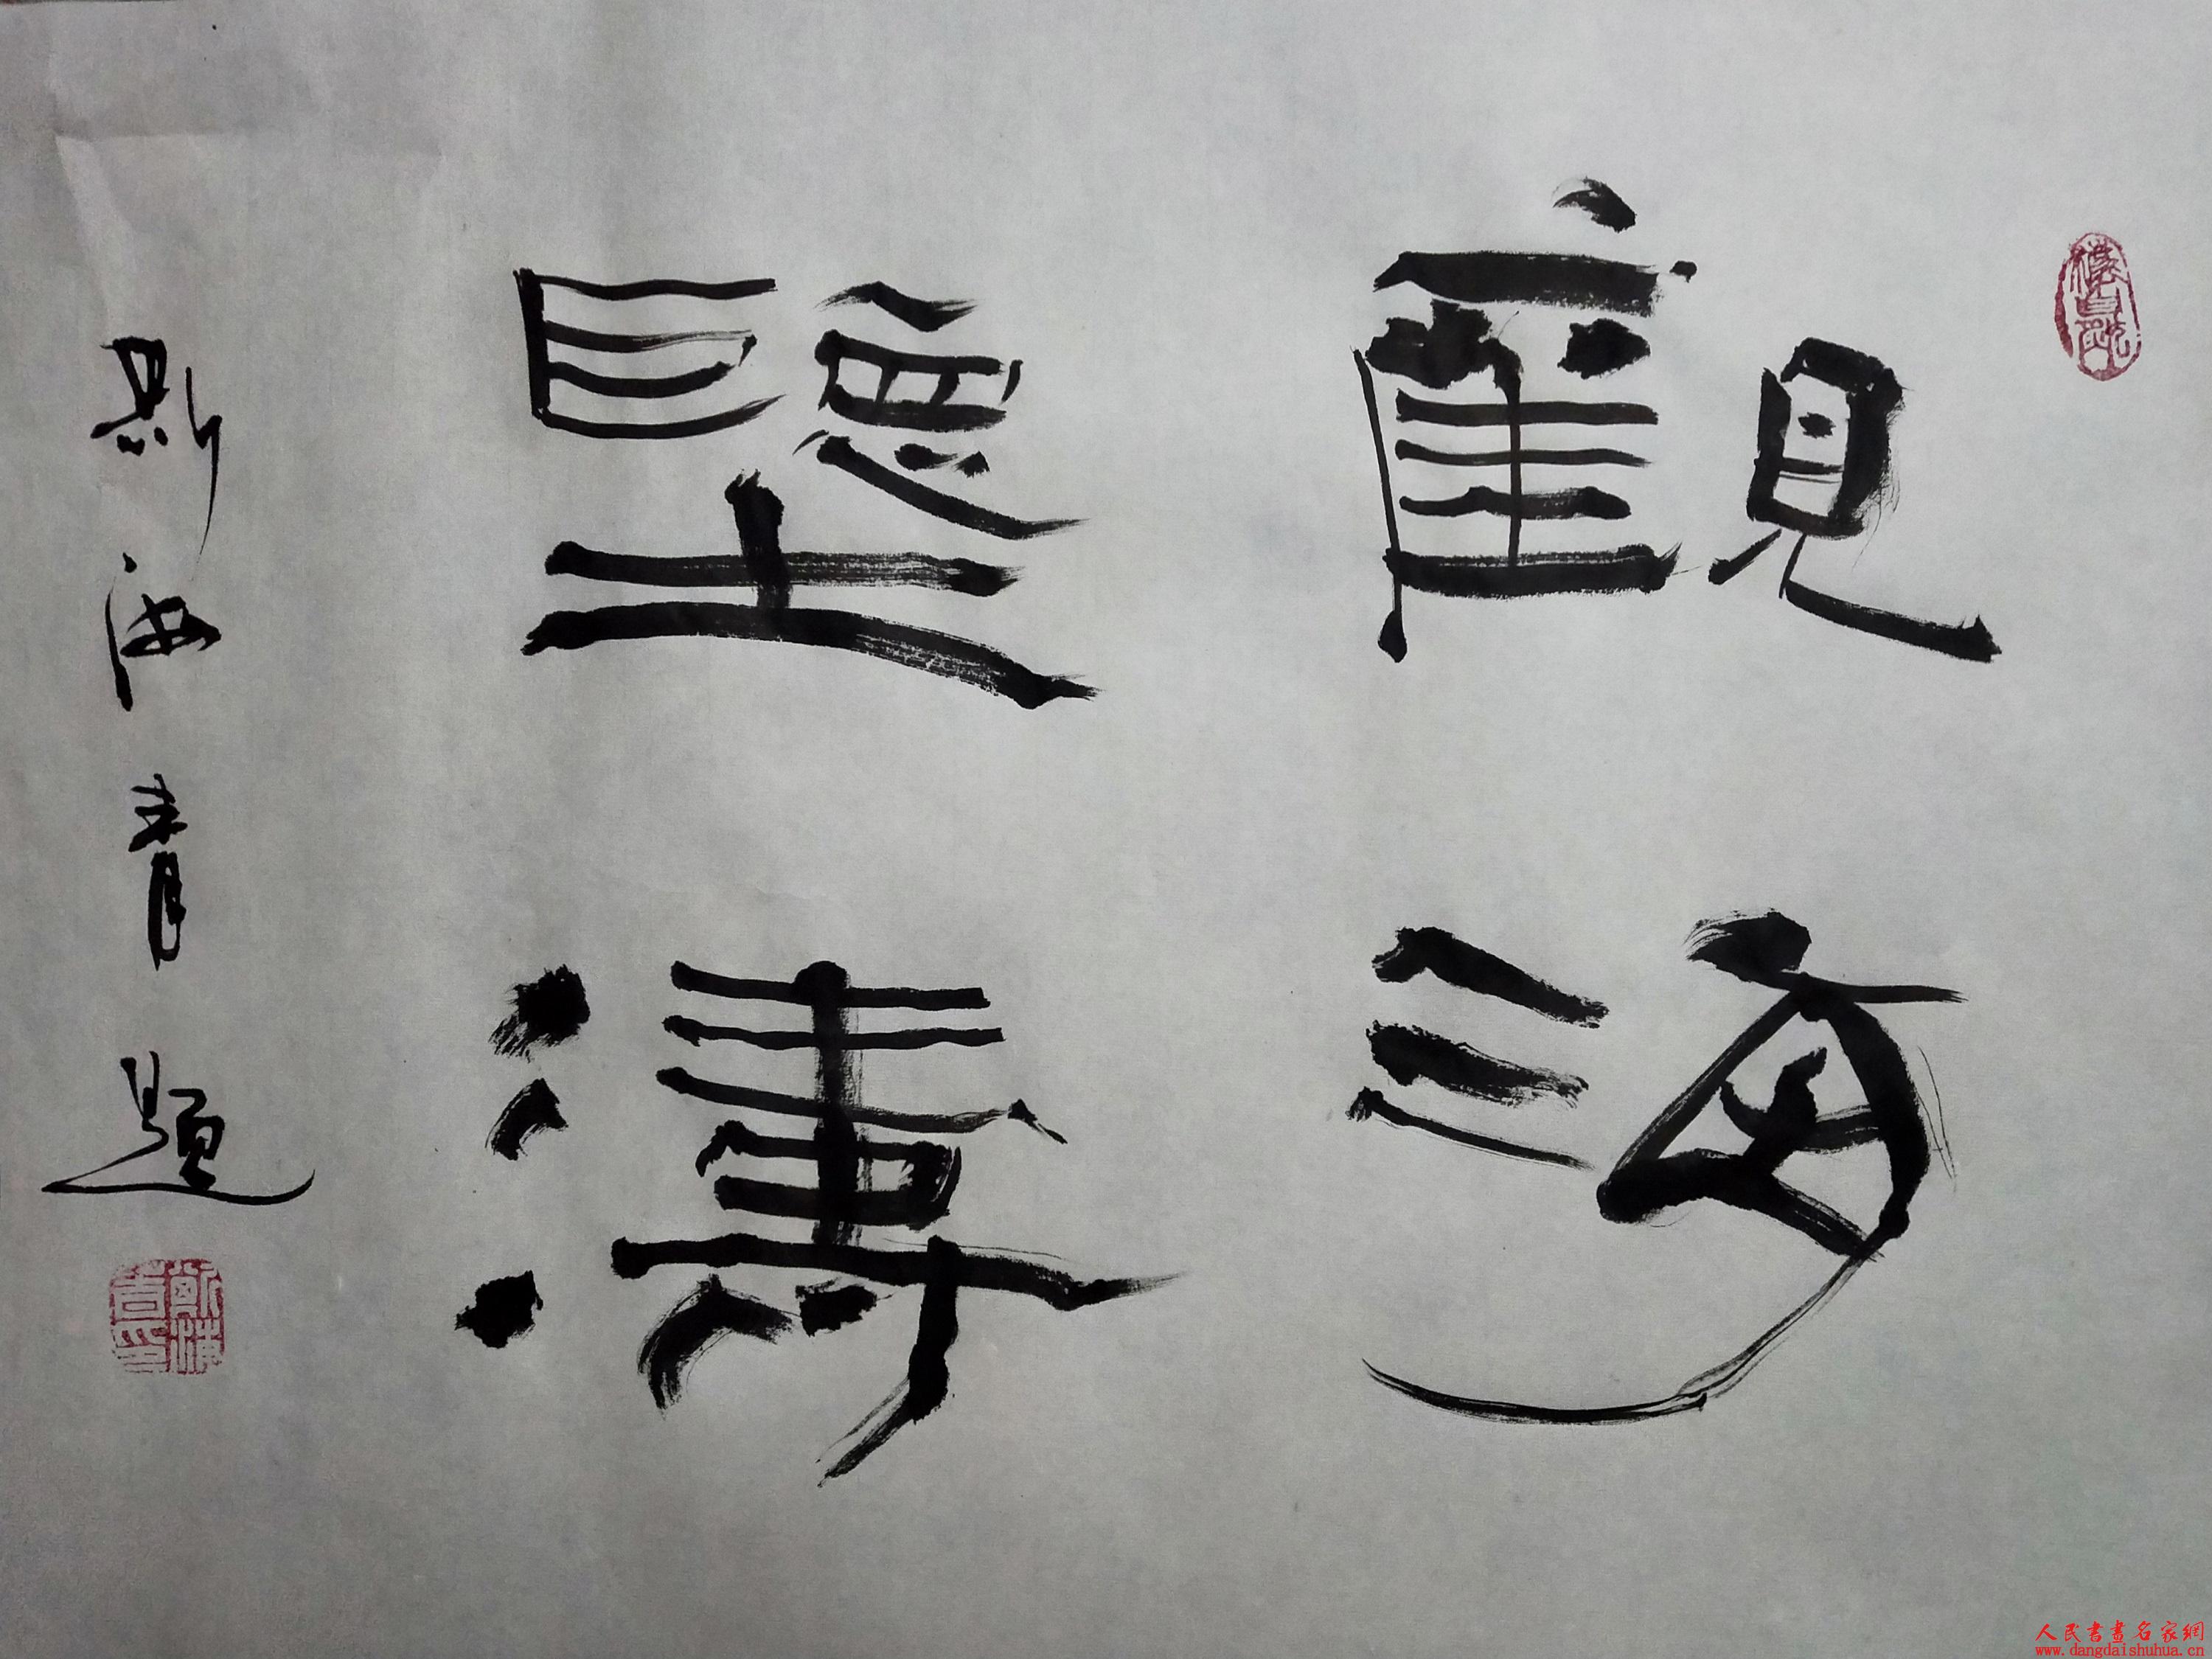 觀海
聽濤
斯海青題
人民書畫名家網
www.dangdaishuhua.cn